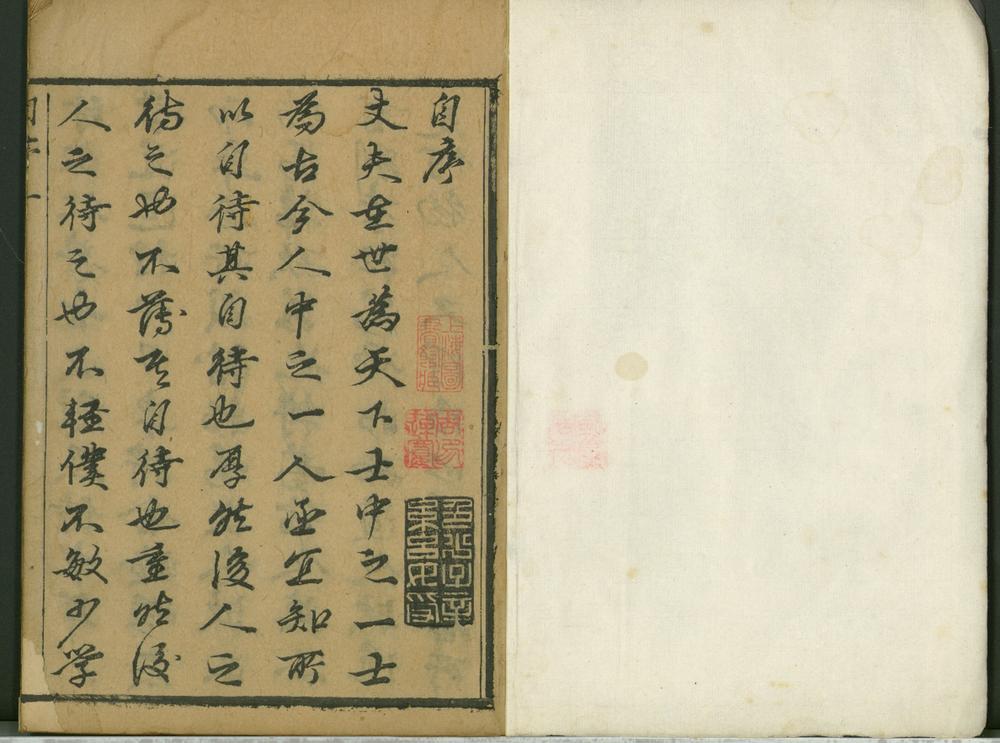 自序
丈夫生世為天下士中之一士
為古今人中之一人亟宜知所
以自待其自待也厚然後人之
待之也不薄其自待也重然後
人之待之也不輕僕不敏少学
上海圖書館藏